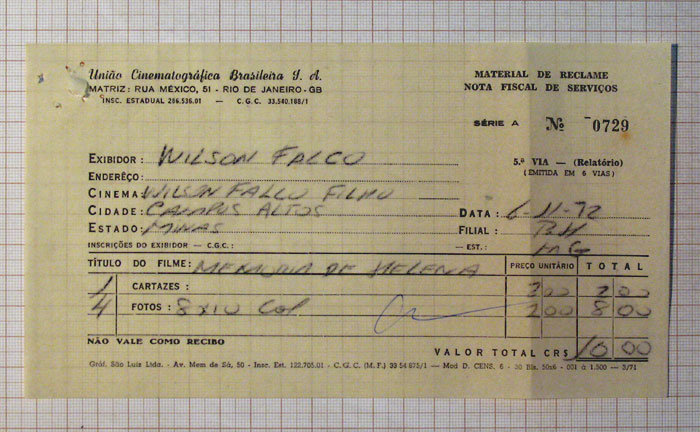 União Cinematográfica Brasileira S. A.
MATRIZ: RUA MÉXICO, 51 - RIO DE JANEIRO-GB
INSC. ESTADUAL 256.536.01 — C.G.C. 33.540.188/1
MATERIAL DE RECLAME
NOTA FISCAL DE SERVIÇOS
SÉRIE A Nº 0729
EXIBIDOR: WILSON FALCO
5.ª VIA — (Relatório)
(EMITIDA EM 6 VIAS)
ENDERÊÇO:
CINEMA: WILSON FALCO FILHO
CIDADE: CAMPOS ALTOS DATA: 6-11-72
ESTADO: MINAS FILIAL: BH
INSCRIÇÕES DO EXIBIDOR — C.G.C.: — EST.: MG
TÍTULO DO FILME: DE HELENA PREÇO UNITÁRIO TOTAL
1 CARTAZES: 2 00 2 00
4 FOTOS: 8x10 Col 2 00 8 00
NÃO VALE COMO RECIBO
VALOR TOTAL CR$ 10 00
Gráf. São Luiz Ltda. - Av. Mem de Sá, 50 - Insc. Est. 122.705.01 - C.G.C. (M.F.) 33 54 875/1 — Mod D. CENS. 6 - 30 Bls. 50x6 - 001 à 1.500 — 3/71